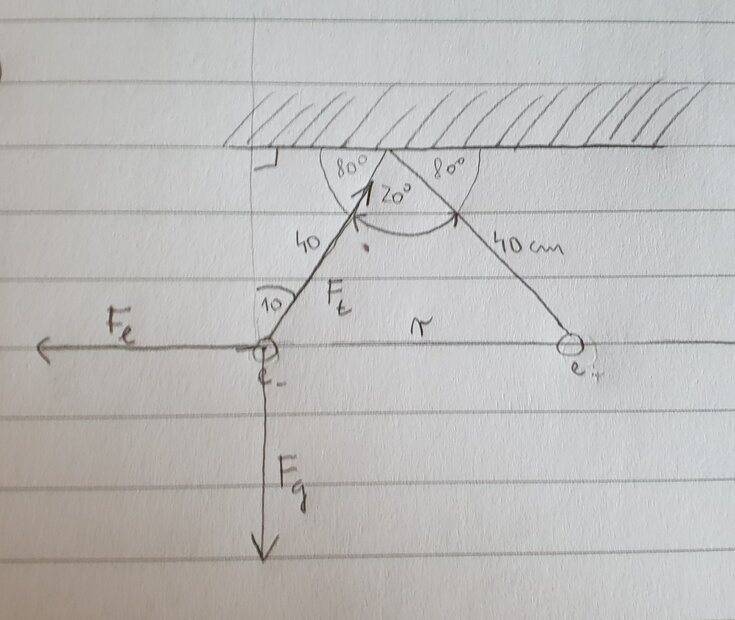 80° 80°
20°
40 40 cm
10 Ft
Fe r
e- e+
Fg